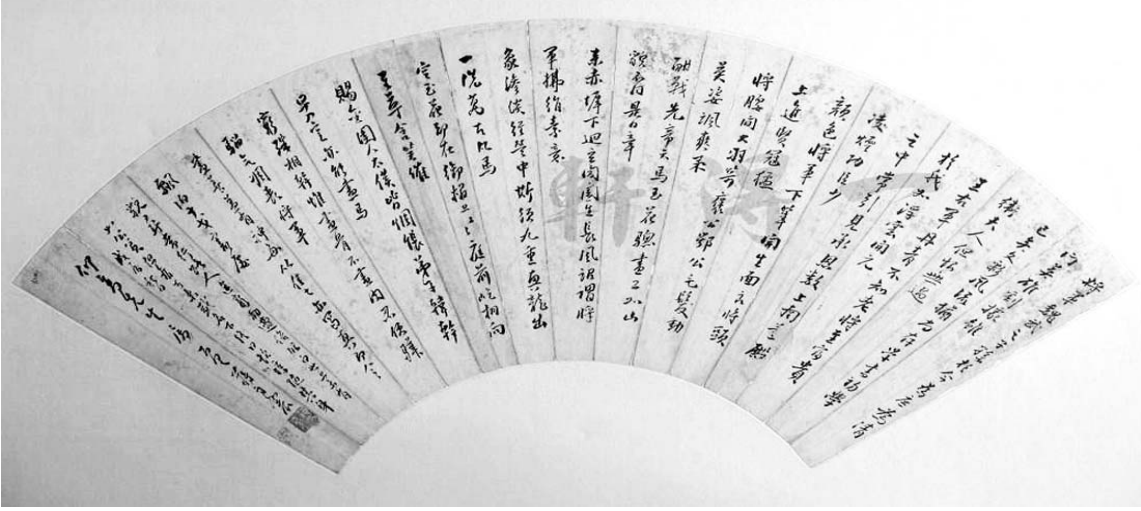 將軍魏武之子孫於今為庶為清
門英雄割據雖
已矣文彩風流猶尚存學書初學
衛夫人但恨無過
王右軍丹青不知老將至富貴
於我如浮雲開元
之中常引見承恩數上南薰殿
凌煙功臣少
顏色將軍下筆開生面良相頭
上進賢冠猛
將腰間大羽箭褒公鄂公毛髮動
英姿颯爽來
酣戰先帝天馬玉花驄畫工如山
貌不同是日牽
來赤墀下迥立閶闔生長風詔謂將
軍拂絹素意
匠慘淡經營中斯須九重真龍出
一洗萬古凡馬
空玉花卻在御榻上榻上庭前屹相向
至尊含笑催
賜金圉人太僕皆惆悵弟子韓幹
早入室亦能畫馬
窮殊相幹惟畫骨不畫肉忍使驊
騮氣凋喪將軍
畫善蓋有神必逢佳士亦寫真即今
飄泊干戈際屢
貌尋常行路人
先生屬
一得軒